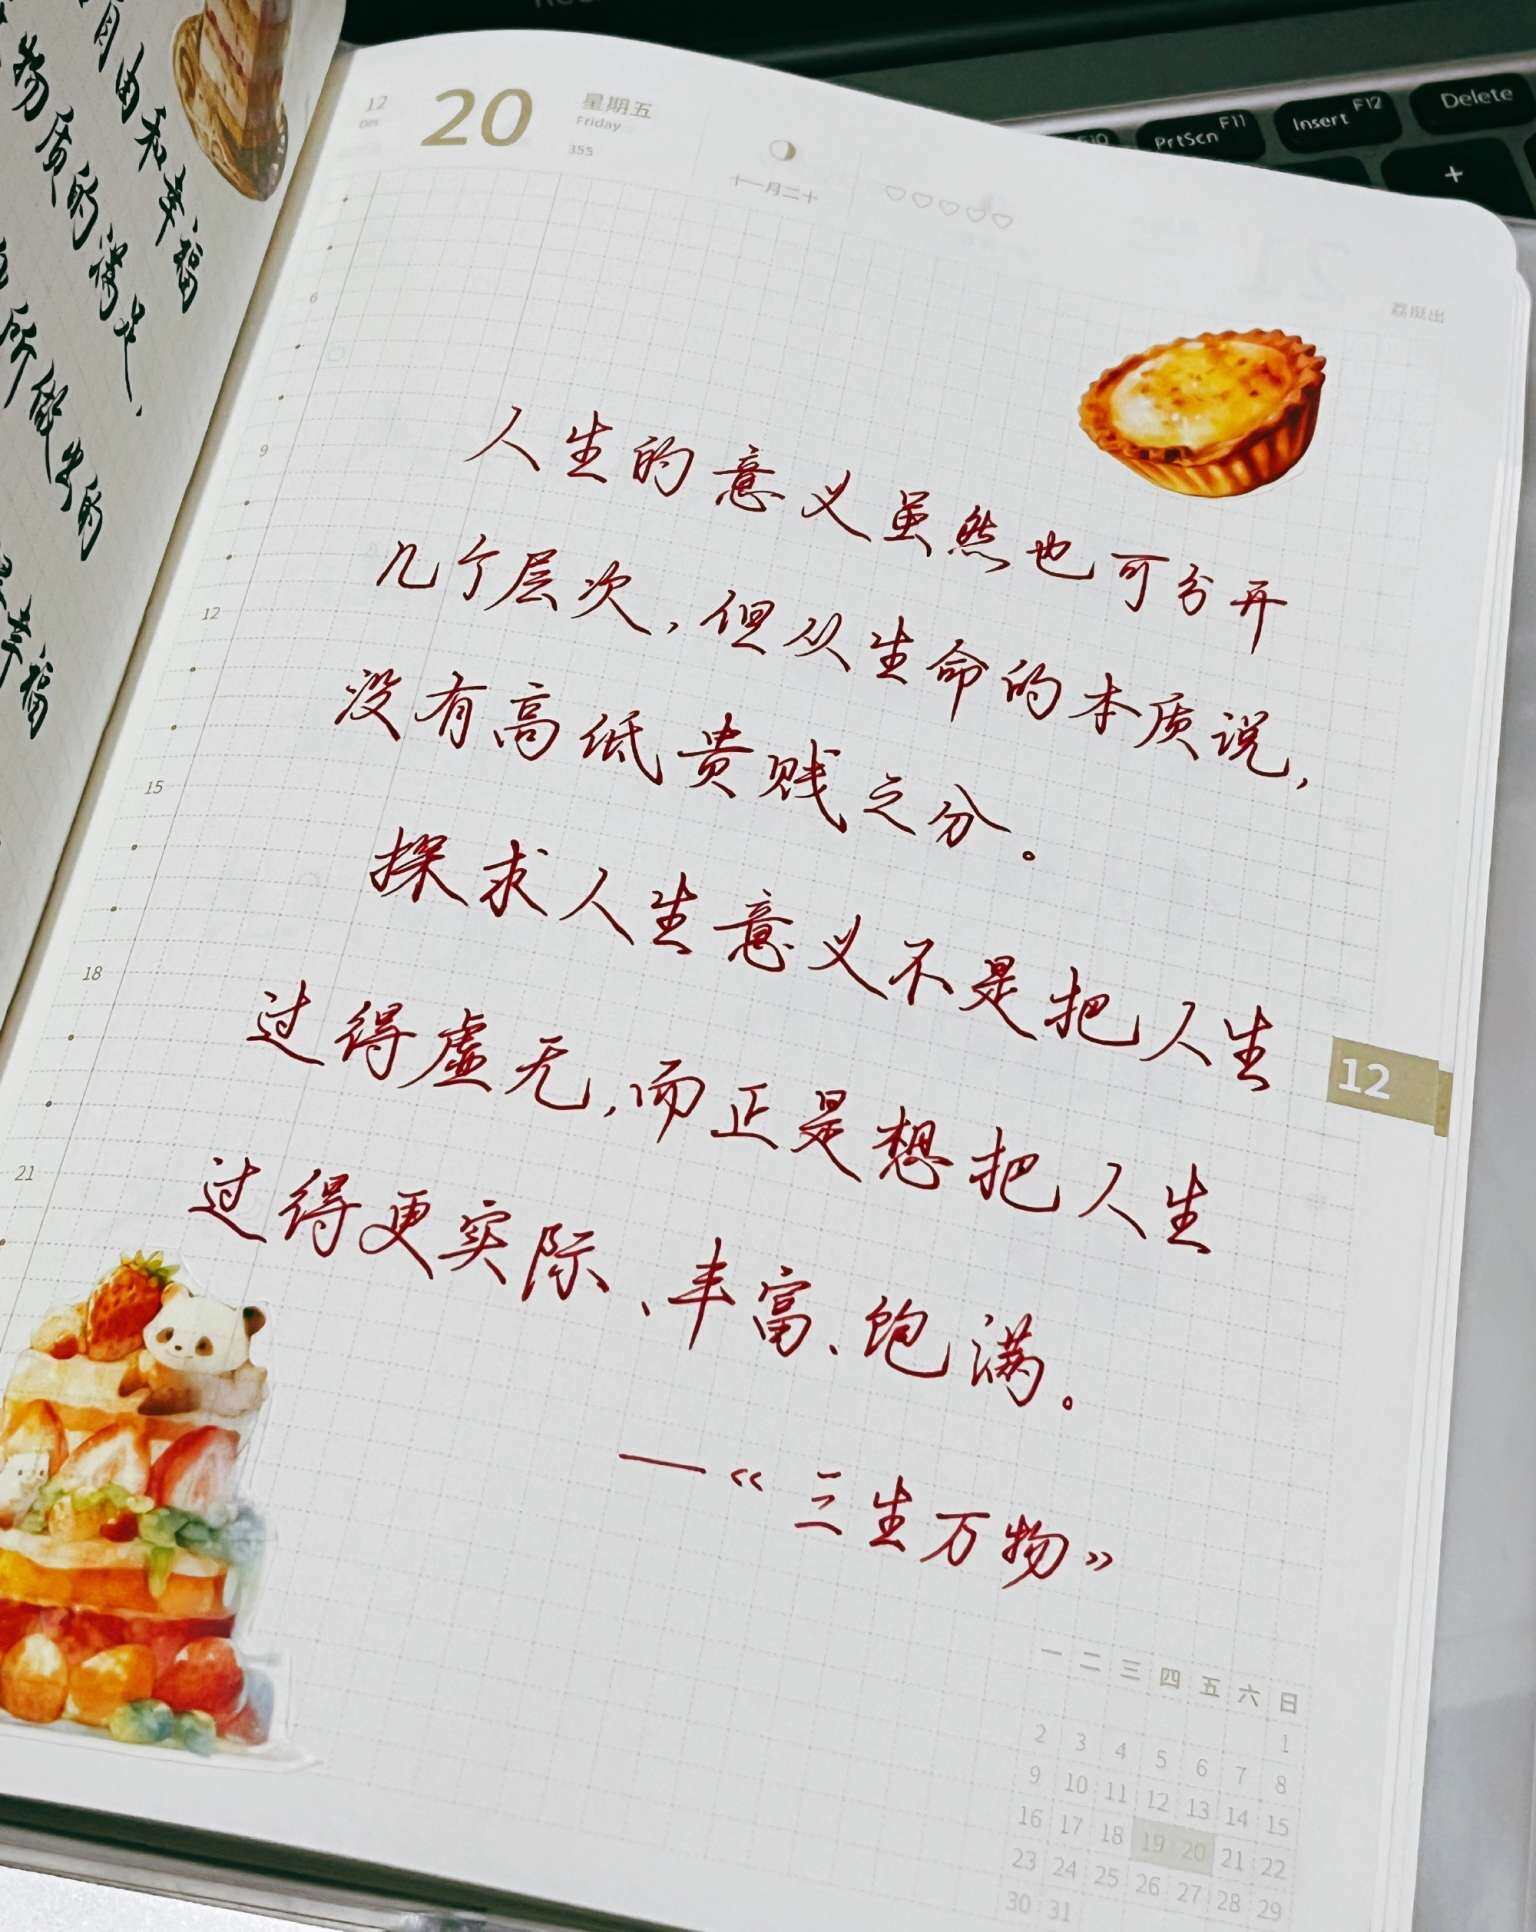 情由和幸福
物质的满足
所留手的
幸福
12
Dec
20
星期五
Friday
355
十一月二十
荔挺出
PrtScn
F11
Insert
F12
Delete
+
F10
6
9
12
15
18
21
人生的意义虽然也可分开
几个层次,但从生命的本质说,
没有高低贵贱之分。
探求人生意义不是把人生
过得虚无,而正是想把人生
过得更实际、丰富、饱满。
—《三生万物》
12
一 二 三 四 五 六 日
1
2 3 4 5 6 7 8
9 10 11 12 13 14 15
16 17 18 19 20 21 22
23 24 25 26 27 28 29
30 31